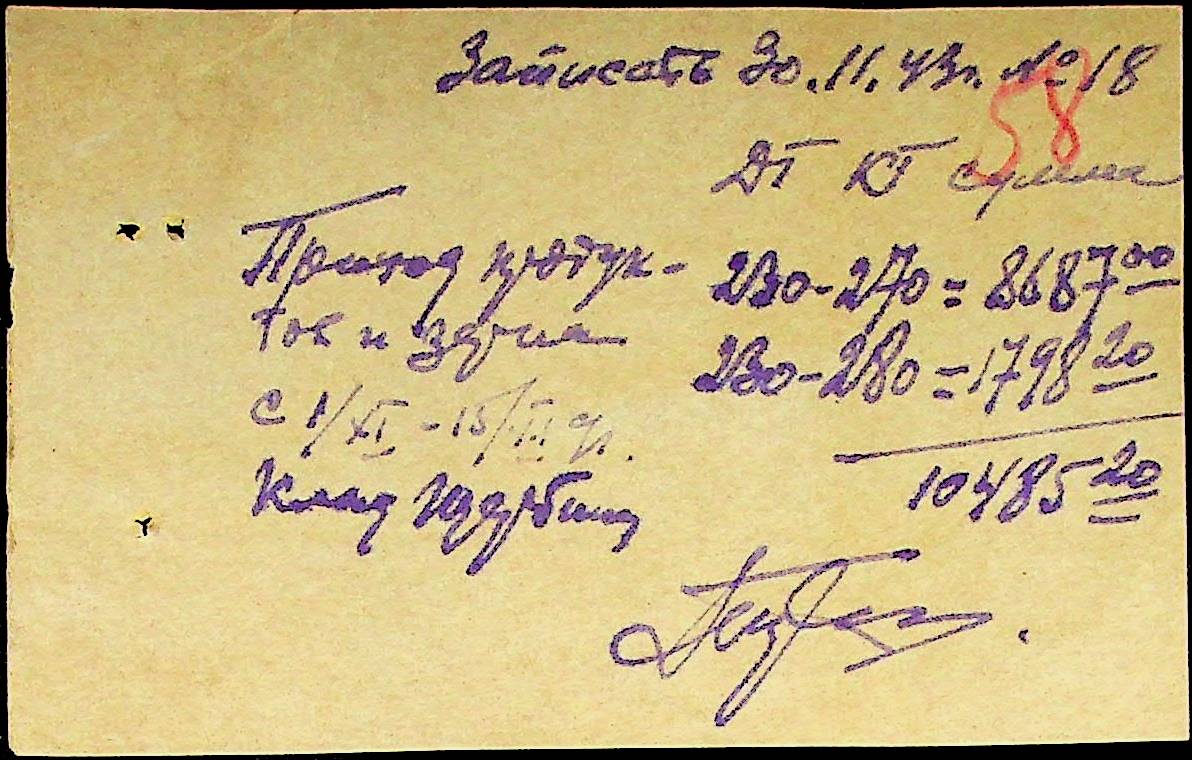 Записать 30.11.43г. № 18
58
Дт Кт сумма
Приход продук- 230-270 = 8687 00
тов и зерна 230-280 = 1798 20
с 1/XI - 15/XI
10485 20
Клад